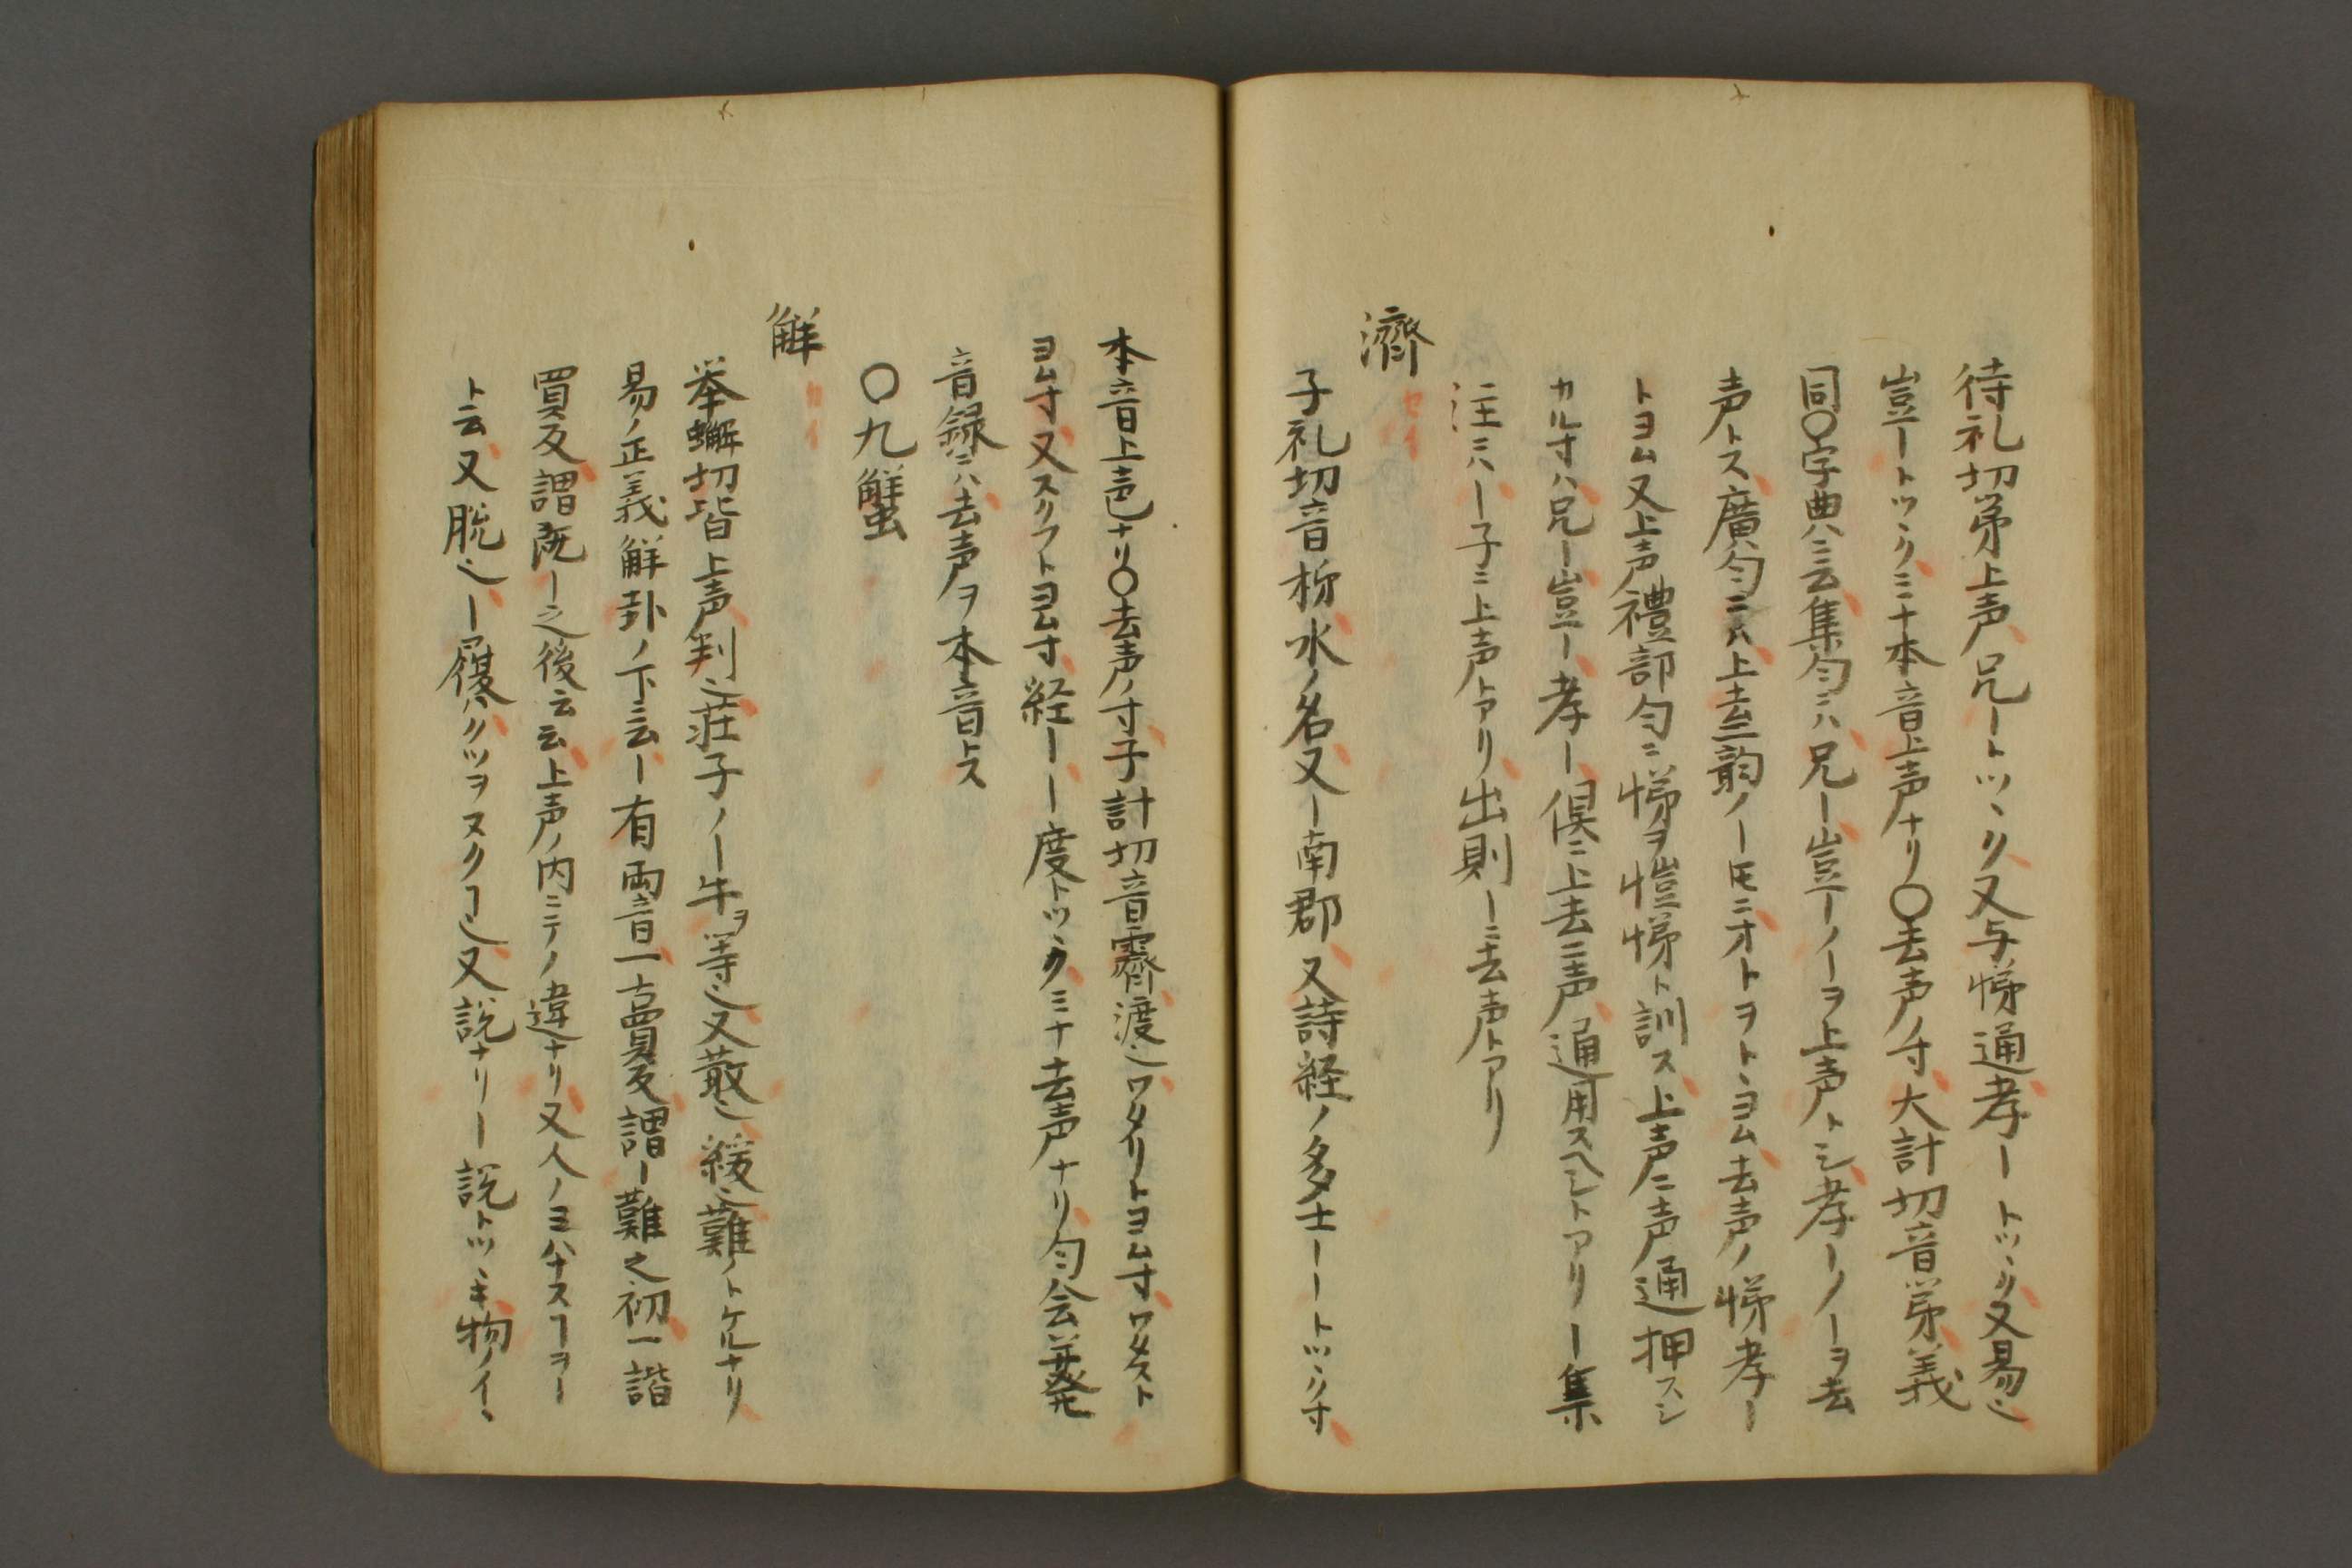 待礼切第上声兄ートツヽク又与悌通孝ートツヽク又易也
豈ートツヽクミナ本音上声ナリ〇去声ノ寸大計切音第義
同〇字典ハ云集匀ニハ兄ー豈ーノーヲ上声トシ孝ーノーヲ去
声トス廣匀ニハ上去二韵ノーモニオトヲトヽヨム去声ノ悌孝ー
トヨム又上声禮部匀ニ悌ヲ愷悌ト訓ス上声二声通押スシ
カル寸ハ兄ー豈ー孝ー倶ニ上去二声通用スヘシトアリー集
注ニハー子ニ上声トアリ出則ーニ去声トアリ
濟
セイ
子礼切音㭰水ノ名又ー南郡又詩経ノ多士ーートツヽク寸
本音上声ナリ〇去声ノ寸子計切音霽渡也ワタリトヨム寸ワタスト
ヨム寸又スクフトヨム寸経ーー度トツヽクミナ去声ナリ匀会並発
音録ニハ去声ヲ本音トス
〇九蟹
解
カイ
挙蠏切皆上声判也荘子ノー牛ヲ等也又散也緩也難ノトケルナリ
易ノ正義解卦ノ下云ー有両音一古買反謂ー難之初一諧
買反謂既ー之後云云上声ノ内ニテノ違ナリ又人ノヨハナスヿヲー
ト云又脱也ー履ハクツヲヌクヿ也又説ナリー説トツヽキ物ノイヽ